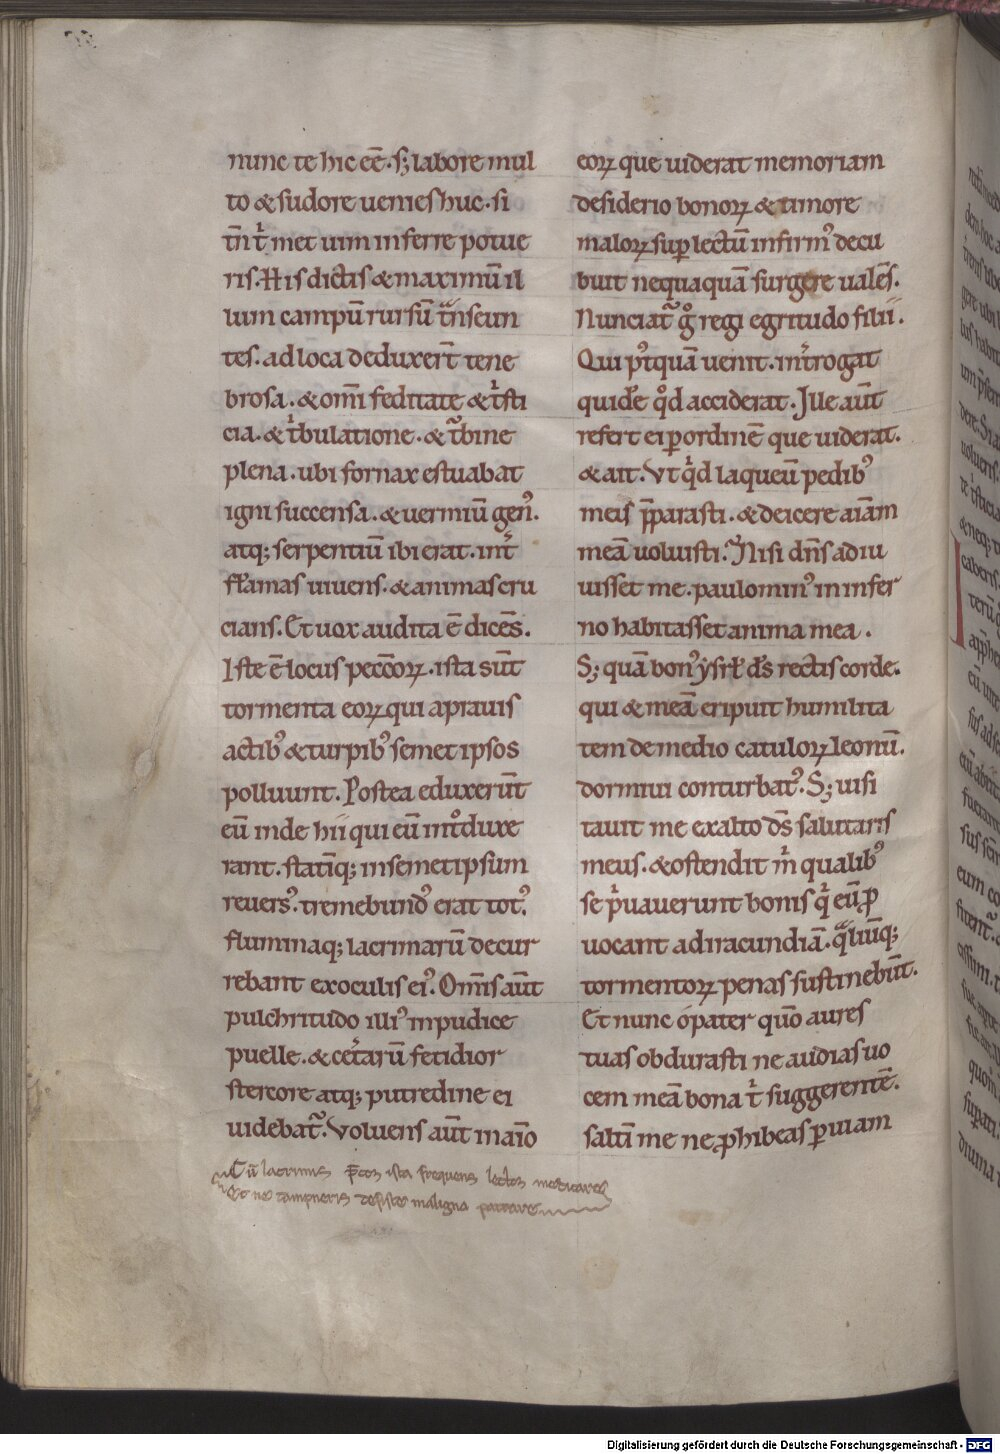 nunc te hic eē. s; labore mul
to & sudore uenies huc. si
tn̄ t̓ met uim inferre potue
ris. His dictis & maximū il
lum campū rursū tn̄seun
tes. ad loca deduxer̄t tene
brosa. & om̄i feditate & t̓sti
cia. & t̓bulatione. & t̄bine
plena. ubi fornax estuabat
igni succensa. & uermiū gen̓.
atq; serpentiū ibi erat. int̓
flāmas uiuens. & animas cru
cians. Et uox audita ē dicēs.
Iste ē locus pecc̄oꝝ. ista sūt
tormenta eoꝝ qui aprauis
actibꝰ & turpibꝰ semet ipsos
polluunt. Postea eduxerūt
eū inde hii qui eū int°duxe
rant. statīq; insemetipsum
reuersꝰ. tremebundꝰ erat totꝰ.
fluminaq; lacrimarū decur
rebant exoculis eiꝰ. Om̄is aūt
pulchritudo illiꝰ inpudice
puelle. & cet̓arū fetidior
stercore atq; putredine ei
uidebat̄. Voluens aūt inaīo
eoꝝ que uiderat memoriam
desiderio bonoꝝ & timore
maloꝝ suꝑ lectū infirmꝰ decu
buit nequaquā surgere ualēs.
Nunciat̄ g° regi egritudo filii.
Qui pꝰtquā uenit. int̓rogat
quid̄e q°d acciderat. Ille aūt
refert ei ꝑordinē que uiderat.
& ait. Vt q̓d laqueū pedibꝰ
meis p̄parasti. & deicere aīam
meā uoluisti. Nisi dn̄s adiu
uisset me. paulominꝰ in infer
no habitasset anima mea.
S; quā bonꝰ ysrl̄ d̄s rectis corde.
qui & meā eripuit humilita
tem de medio catuloꝝ leonū.
dormiui conturbatꝰ. S; uisi
tauit me exalto d̄s salutaris
meus. & ostendit m̓ qualibꝰ
se p̓uauerunt bonis q̓ eū ꝓ
uocant adiracundiā. q̄liūq;
tormentoꝝ penas sustinebūt.
Et nunc ó pater quō aures
tuas obdurasti ne audias uo
cem meā bona t̓ suggerentē.
saltī me ne ꝓhibeas ꝑ uiam
Cū lacrimis p̄cor ista frequens lector mediteres
Et ne dampneris desiste maligna patrare